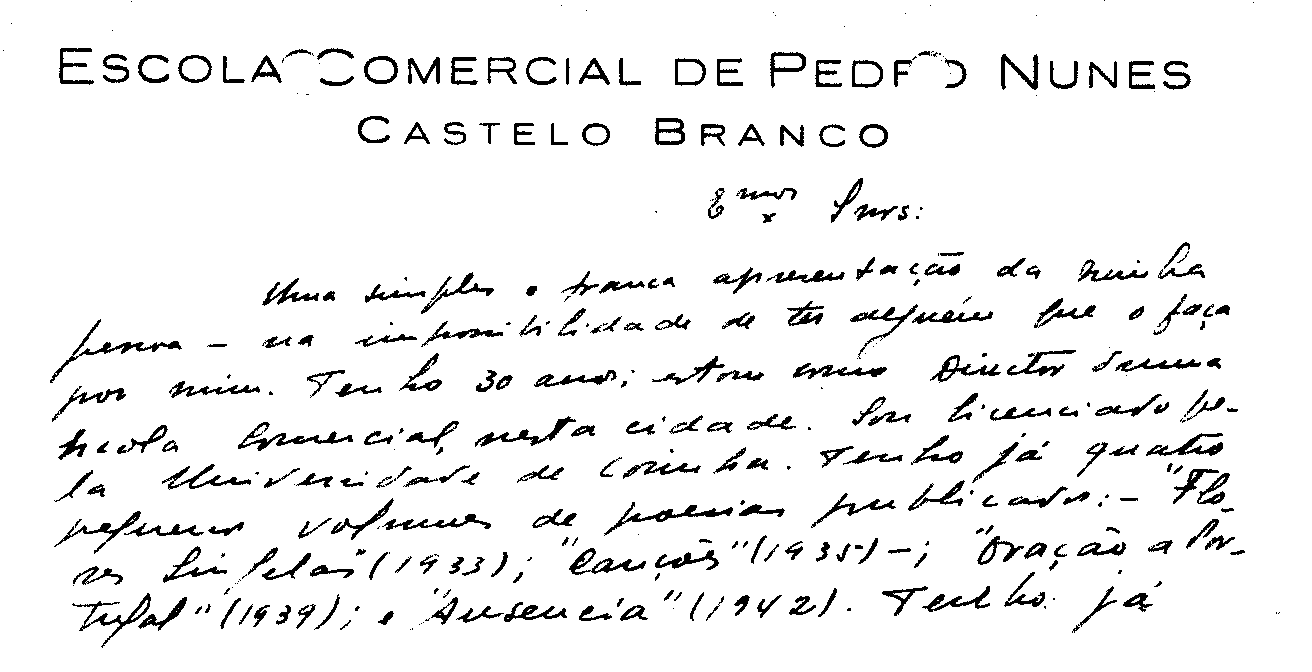 ESCOLA COMERCIAL DE PEDRO NUNES
CASTELO BRANCO
Exmos Snrs:
Uma simples e franca apresentação da minha
pessoa – na impossibilidade de ter alguém que o faça
por mim. Tenho 30 anos; estou como Director duma
Escola Comercial, nesta cidade. Sou licenciado pe-
la Universidade de Coimbra. Tenho já quatro
pequenos volumes de poesias publicados: – "Flo-
res Singelas" (1933); "Canções" (1935) –; "Oração a Por-
tugal" (1939); e "Ausencia" (1942). Tenho já